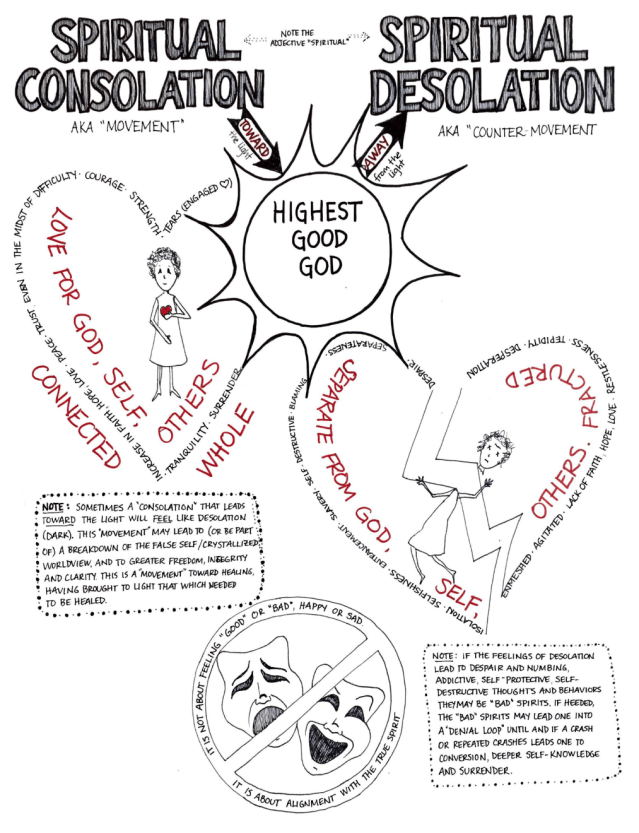 SPIRITUAL
CONSOLATION
AKA "MOVEMENT"
NOTE THE
ADJECTIVE "SPIRITUAL"
SPIRITUAL
DESOLATION
AKA "COUNTER-MOVEMENT
TOWARD
the light
AWAY
from the
light
HIGHEST
GOOD
GOD
INCREASE IN FAITH, HOPE, LOVE · PEACE · TRUST EVEN IN THE MIDST OF DIFFICULTY · COURAGE · STRENGTH ·
TEARS (ENGAGED ♡)
· TRANQUILITY · SURRENDER
LOVE FOR GOD, SELF,
OTHERS
CONNECTED
WHOLE
ISOLATION · SELFISHNESS · ENTRANCEMENT · SLAVERY · SELF-DESTRUCTIVE · BLAMING
SEPARATENESS ·
DESPAIR ·
SEPARATE FROM GOD,
SELF,
OTHERS · FRACTURED
ENMESHED · AGITATED · LACK OF FAITH, HOPE, LOVE · RESTLESSNESS · TEPIDITY · DESPERATION
NOTE: SOMETIMES A "CONSOLATION" THAT LEADS
TOWARD THE LIGHT WILL FEEL LIKE DESOLATION
(DARK). THIS "MOVEMENT" MAY LEAD TO (OR BE PART
OF) A BREAKDOWN OF THE FALSE SELF/CRYSTALLIZED
WORLDVIEW, AND TO GREATER FREEDOM, INTEGRITY
AND CLARITY. THIS IS A "MOVEMENT" TOWARD HEALING,
HAVING BROUGHT TO LIGHT THAT WHICH NEEDED
TO BE HEALED.
IT IS NOT ABOUT FEELING "GOOD" OR "BAD", HAPPY OR SAD
IT IS ABOUT ALIGNMENT WITH THE TRUE SPIRIT
NOTE: IF THE FEELINGS OF DESOLATION
LEAD TO DESPAIR AND NUMBING,
ADDICTIVE, SELF-PROTECTIVE, SELF-
DESTRUCTIVE THOUGHTS AND BEHAVIORS
THEY MAY BE "BAD" SPIRITS. IF HEEDED,
THE "BAD" SPIRITS MAY LEAD ONE INTO
A "DENIAL LOOP" UNTIL AND IF A CRASH
OR REPEATED CRASHES LEADS ONE TO
CONVERSION, DEEPER SELF-KNOWLEDGE
AND SURRENDER.